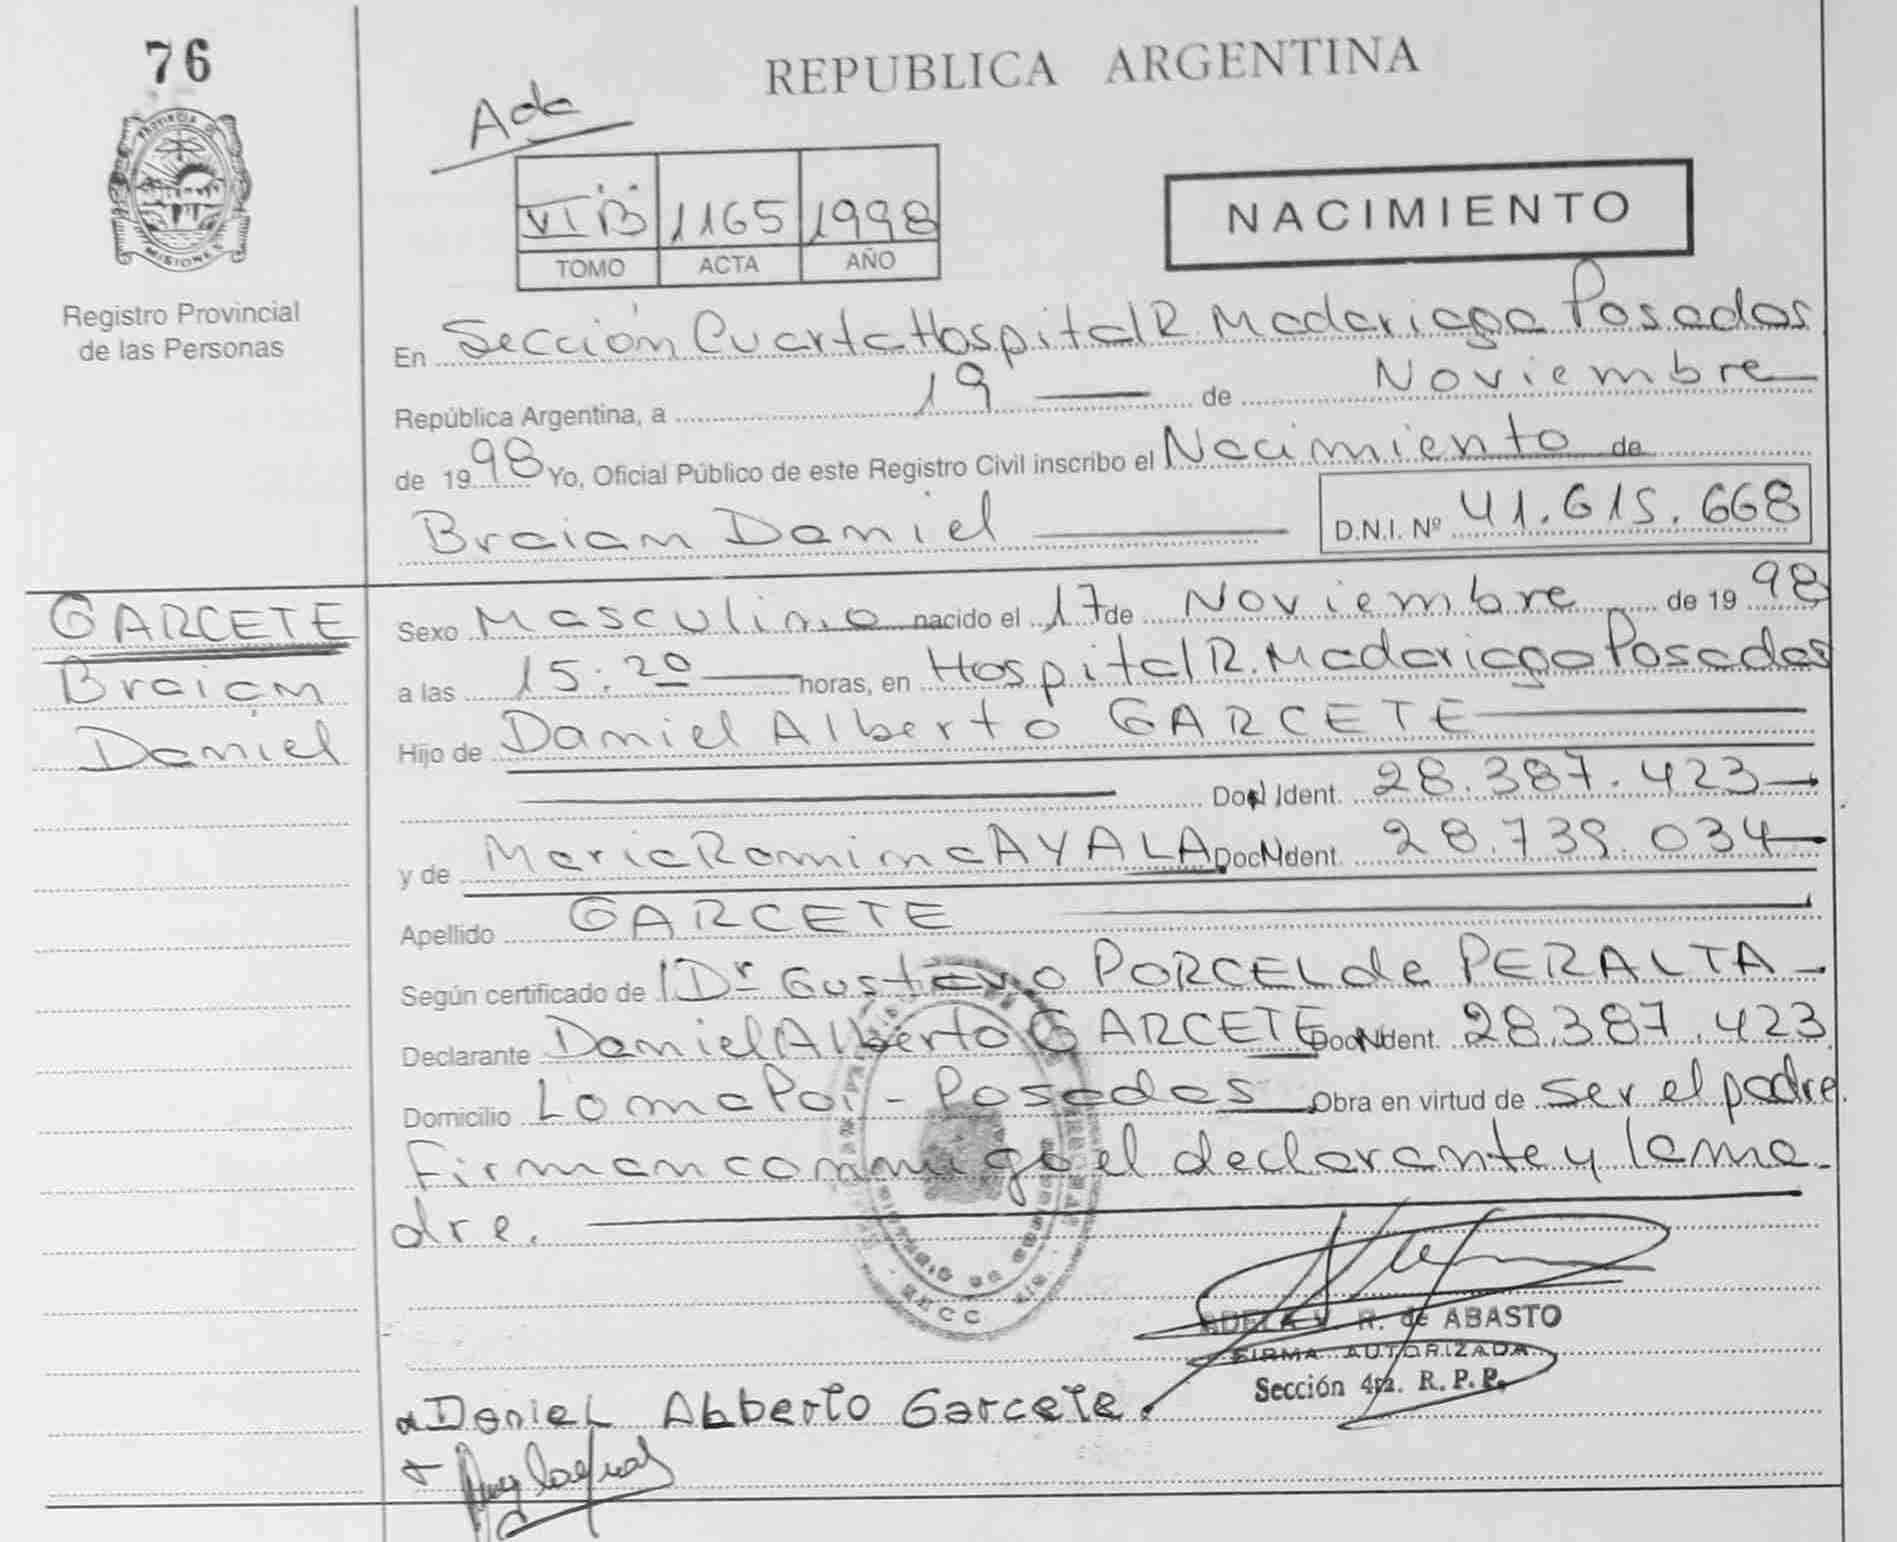 76
REPUBLICA ARGENTINA
PROVINCIA DE
MISIONES
Registro Provincial
de las Personas
VI B 1165 1998
TOMO ACTA AÑO
NACIMIENTO
En Sección Cuarta Hospital R. Madariaga Posadas
República Argentina, a 19 de Noviembre
de 1998 Yo, Oficial Público de este Registro Civil inscribo el Nacimiento de
Braian Daniel D.N.I. Nº 41.615.668
GARCETE
Braian
Daniel
Sexo Masculino nacido el 17 de Noviembre de 1998
a las 15:20 horas, en Hospital R. Madariaga Posadas
Hijo de Daniel Alberto GARCETE
Ident. 28.387.423
y de Maria Romina AYALA Doc Ident. 28.739.034
Apellido GARCETE
Según certificado de Dr Gustavo PORCEL de PERALTA
Declarante Daniel Alberto GARCETE Doc Ident. 28.387.423
Domicilio Loma Poi - Posadas Obra en virtud de ser el padre.
Firman conmigo el declarante y la ma-
dre.
ADELA V. R. de ABASTO
FIRMA AUTORIZADA
Sección 4ta. R. P. P.
Daniel Alberto Garcete.